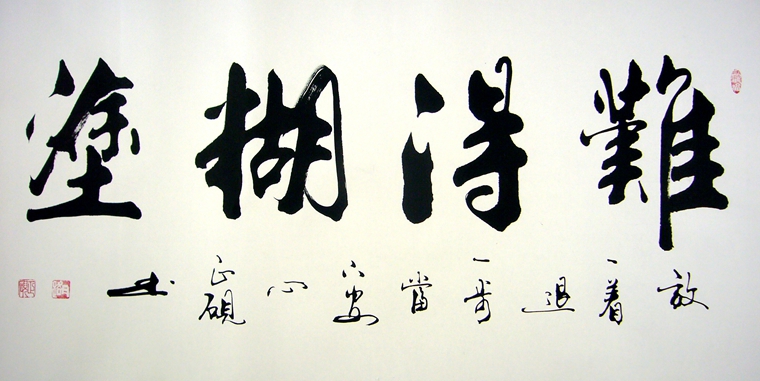 難得糊塗
放一着退一步當下安心正硯書